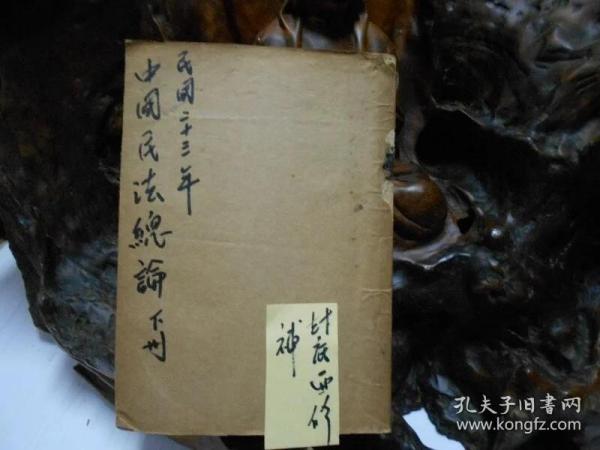 民國二十三年
中國民法總論 下册
封皮要修
補
孔夫子旧書网
www.kongfz.com